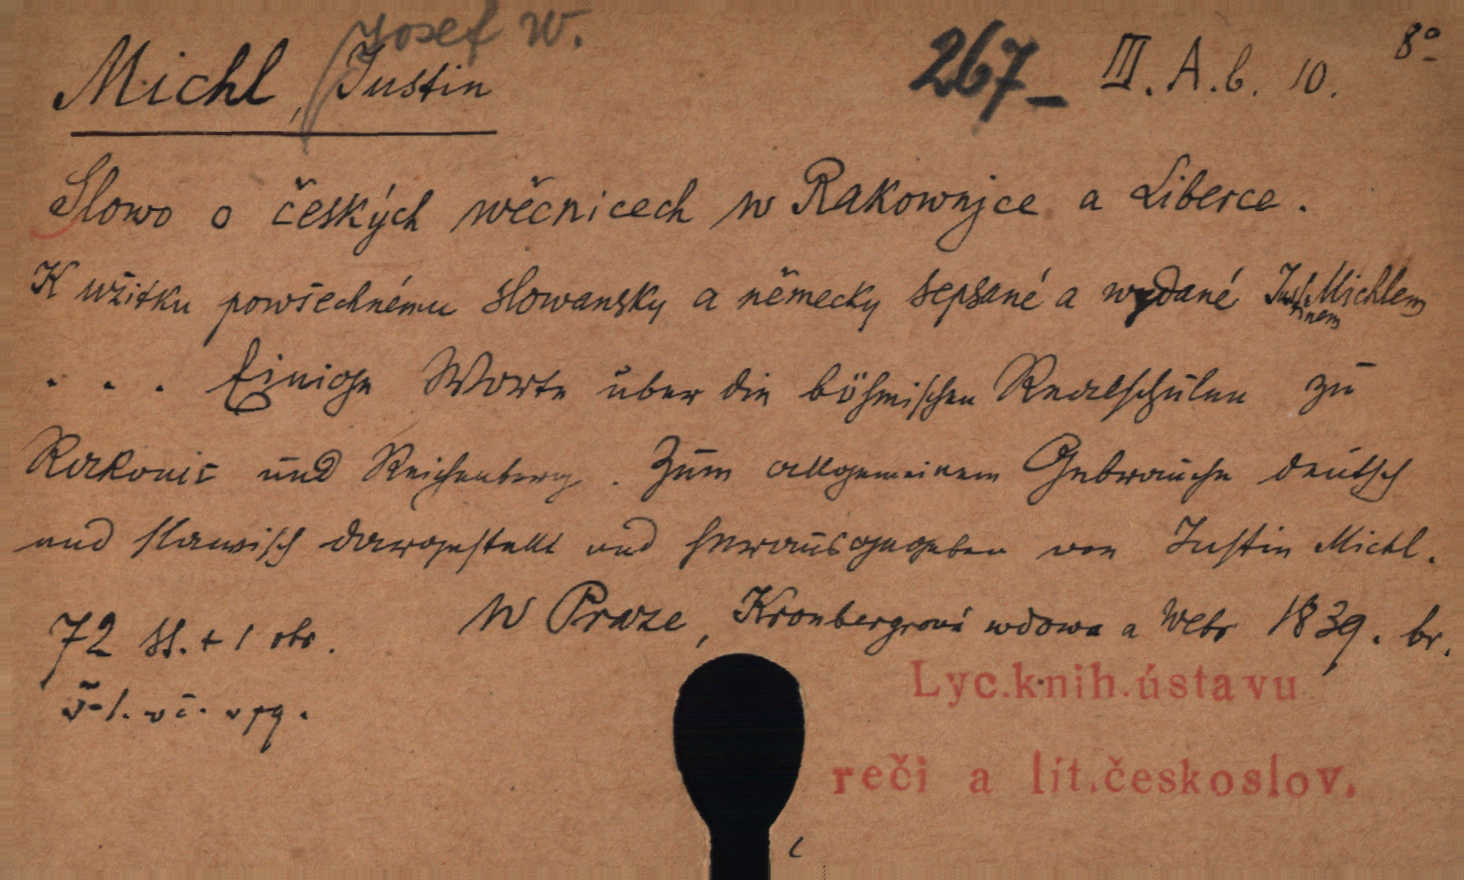 Josef W.
Michl, Justin 267- III. A. b. 10. 8°
Slowo o českých wěcnicech w Rakownjce a Liberce.
K užitku powšechnému slowansky a německy sepsané a wydané Justinem Michlem
... Einige Worte über die böhmischen Realschulen zu
Rakonic und Reichenberg. Zum allgemeinem Gebrauche deutsch
und slawisch dargestellt und herausgegeben von Justin Michl.
W Praze, Kronbergrová wdowa a Webr 1839. br.
72 ss. + 1 obr.
Lyc.knih.ústavu
reči a lit.českoslov.